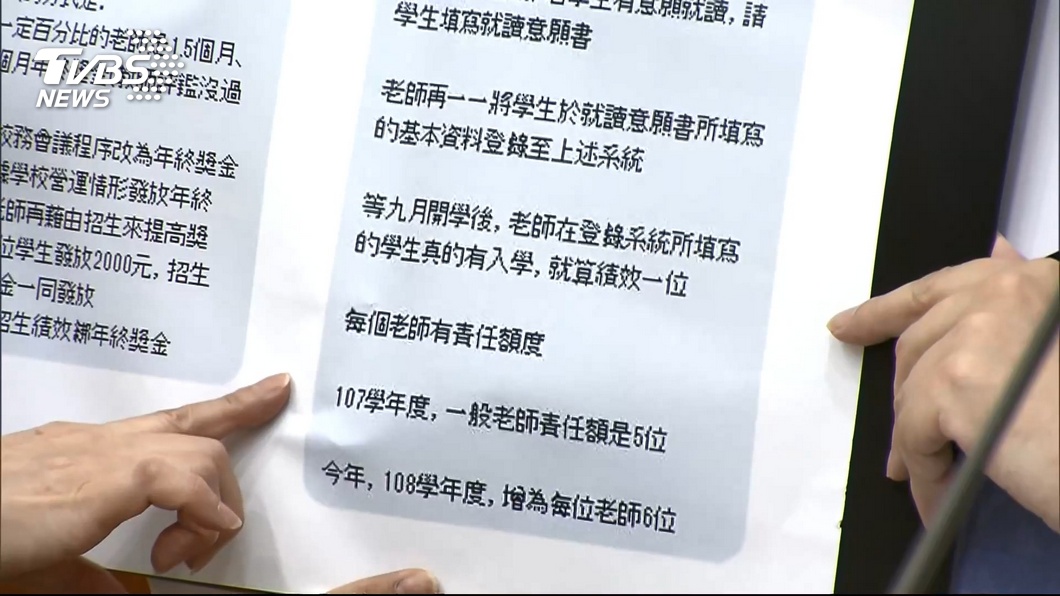 TVBS
NEWS
一定百分比的老師
1.5個月、
個月年
鑑沒過
校務會議程序改為年終獎金
學校營運情形發放年終
老師再藉由招生來提高獎
位學生發放2000元，招生
金一同發放
招生績效綁年終獎金
學生有意願就讀，請
學生填寫就讀意願書
老師再一一將學生於就讀意願書所填寫
的基本資料登錄至上述系統
等九月開學後，老師在登錄系統所填寫
的學生真的有入學，就算績效一位
每個老師有責任額度
107學年度，一般老師責任額是5位
今年，108學年度，增為每位老師6位